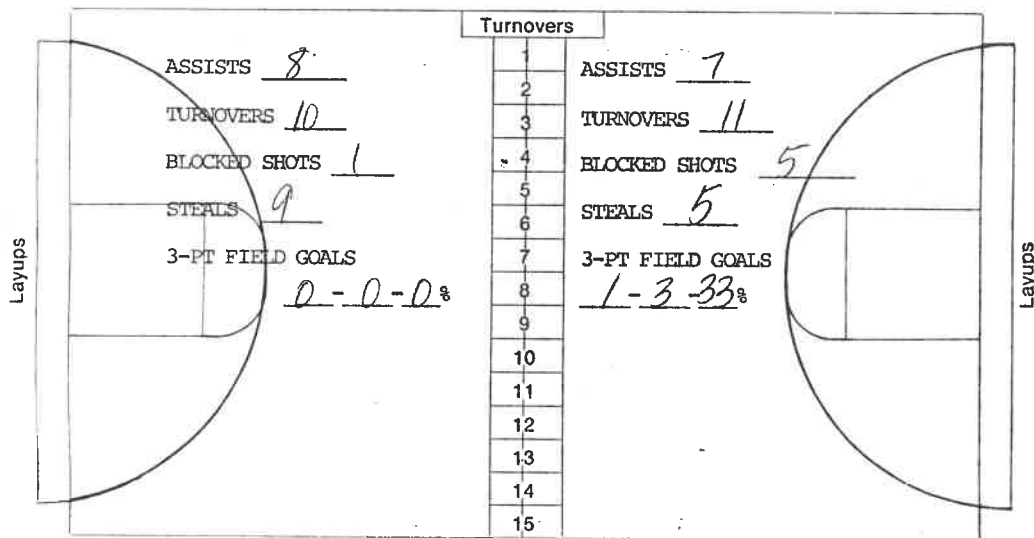 Turnovers
ASSISTS 8
TURNOVERS 10
BLOCKED SHOTS 1
STEALS 9
3-PT FIELD GOALS
0 - 0 - 0%
Layups
1
2
3
4
5
6
7
8
9
10
11
12
13
14
15
ASSISTS 7
TURNOVERS 11
BLOCKED SHOTS 5
STEALS 5
3-PT FIELD GOALS
1 - 3 - 33%
Layups